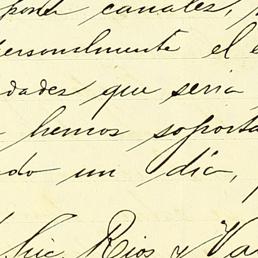 poner canales,
personalmente el e
dades que seria
hemos soporta
do un dia,
hic Rios y Va